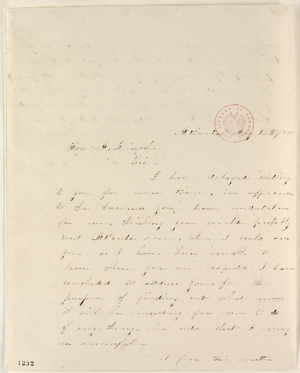 Hon A. Lincoln
Sir
I have delayed writing
to you for some time, in reference
to the business you have undertaken
for me, thinking you would probably
visit Atlanta soon, when I could see
you, as I have been unable to
learn when you are expected I have
concluded to address you for the
purpose of finding out what more
it will be necessary for me to do
if anything, in order that I may
be successful -
I from this matter
1232